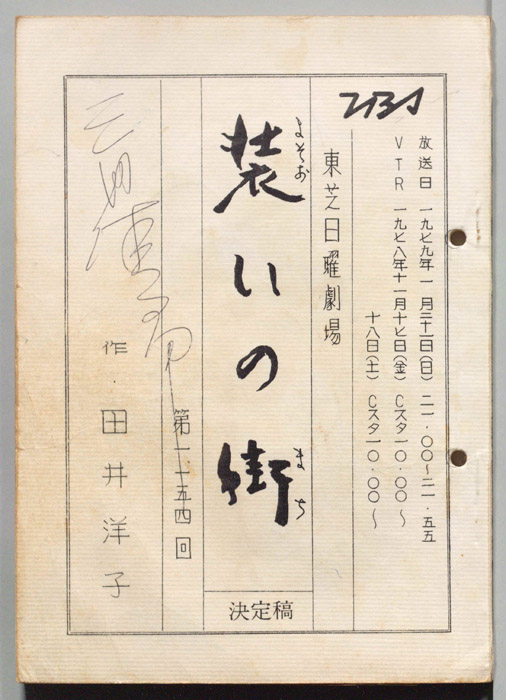 TBS
放送日 一九七九年一月二十一日(日) 二一・〇〇〜二一・五五
VTR 一九七八年十一月十七日(金) Cスタ一〇・〇〇〜
十八日(土) Cスタ一〇・〇〇〜
東芝日曜劇場
よそお まち
装いの街
決定稿
第一一五四回
作・田井洋子